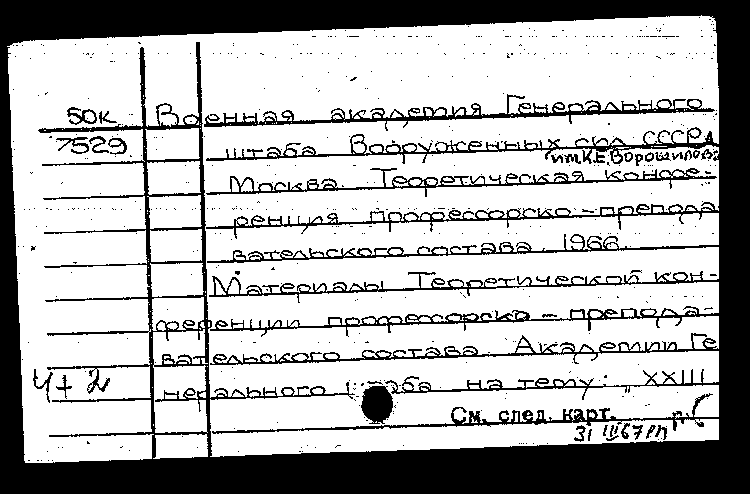 50к Военная академия Генерального
7529 штаба Вооруженных сил СССР
им.К.Е.Ворошилова
Москва. Теоретическая конфе-
ренция профессорско-препода-
вательского состава. 1966.
Материалы Теоретической кон-
ференции профессорско-препода-
вательского состава Академии Ге
нерального штаба на тему: „XXIII
4+2
См. след. карт.
31 III 67